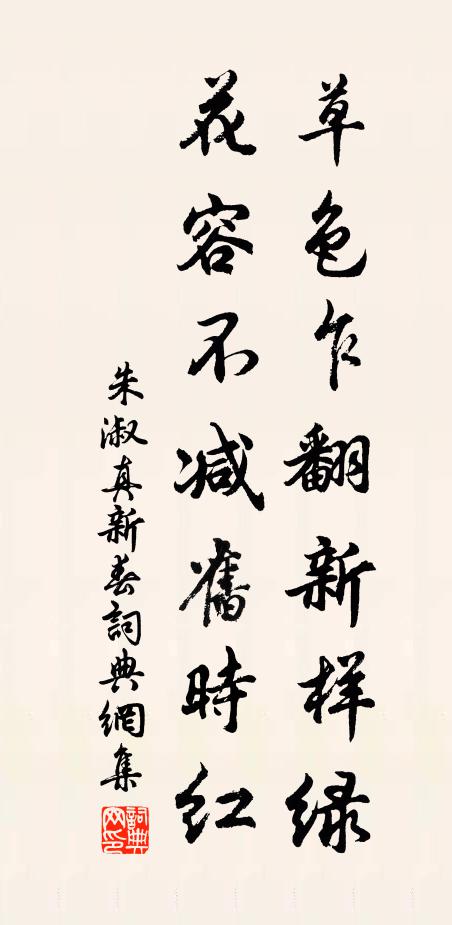 草色乍翻新样绿
花容不减舊時红
朱淑真新春詞典網集
詞典網印